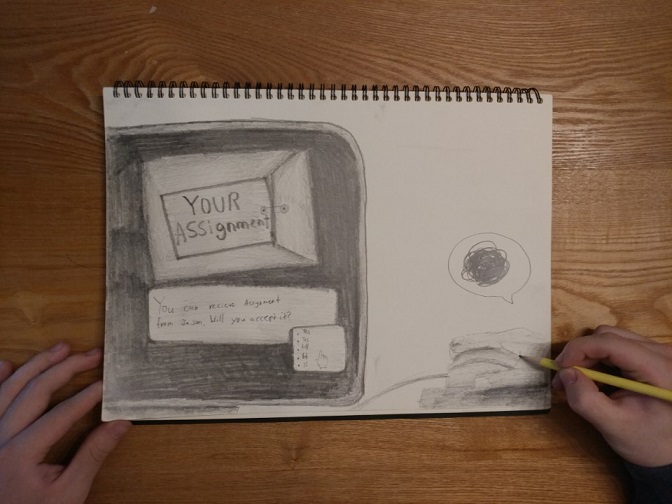 YOUR
ASSignment
You can recieve Assignment
from Will you accept it?